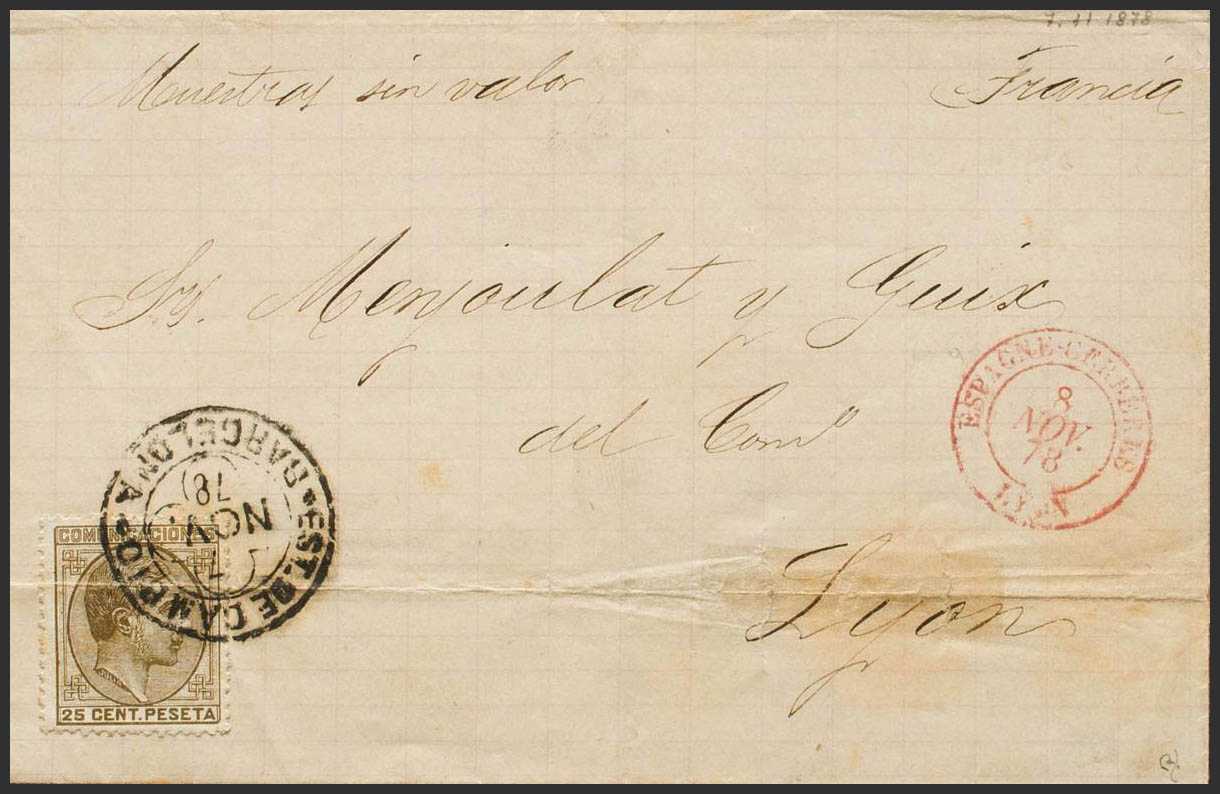 7. 11 1878
Muestras sin valor Francia
Srs. Menjoulat y Guix
del Comº
Lyon
ESPAGNE-CERBÈRES
8
NOV.
78
EST. DE CAMBIO
BARCELONA
7
NOV.
78
COMUNICACIONES
25 CENT. PESETA